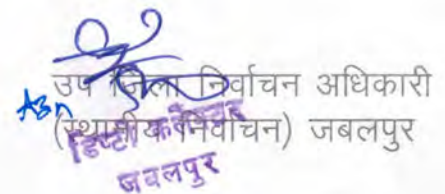 उप जिला निर्वाचन अधिकारी
(स्थानीय निर्वाचन) जबलपुर
डिप्टी कलेक्टर
जबलपुर